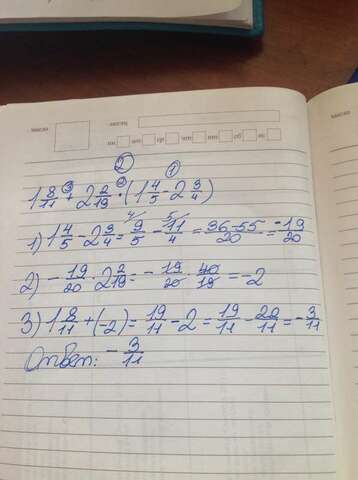 число месяц число
пн вт ср чт пт сб вс
②
③ ② ①
1 8/11 + 2 2/19 · (1 4/5 - 2 3/4)
1) 1 4/5 - 2 3/4 = 4/ 9/5 - 5/ 11/4 = 36-55/20 = -19/20
2) - 19/20 · 2 2/19 = - 19/20 · 40/19 = -2
3) 1 8/11 + (-2) = 19/11 - 2 = 19/11 - 22/11 = - 3/11
Ответ: - 3/11